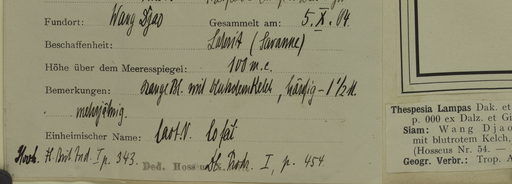 Fundort: Wang Djao Gesammelt am: 5. X. 04.
Beschaffenheit: Laterit (Savanne)
Höhe über dem Meeresspiegel: 100 m.
Bemerkungen: orange Bl. mit blutrotem Kelch, 1 1/2 M.
mehrjährig.
Einheimischer Name:
Hook. Fl. Brit. Ind. I p. 343. Ded. Hosseus I, p. 454
Thespesia Lampas Dak. et
p. 000 ex Dalz. et Gi
Siam: Wang Djao
mit blutrotem Kelch,
(Hosseus Nr. 54. —
Geogr. Verbr.: Trop. A